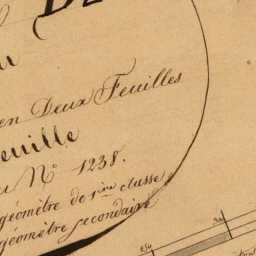 en Deux Feuilles
euille
u N° 1238.
géomètre de 1ère classe
géomètre secondaire